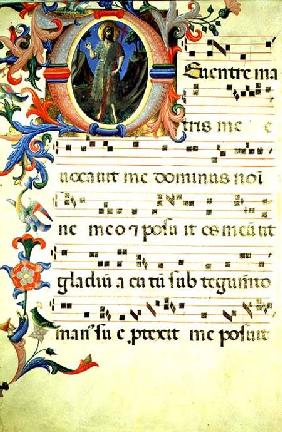 D Euentre ma
tris me e
uocauit me dominus noi
ne meo ⁊ posu it os meũ ut
gladiũ a cu tũ sub tegumto
man᾿ su e ꝓtexit me posuit